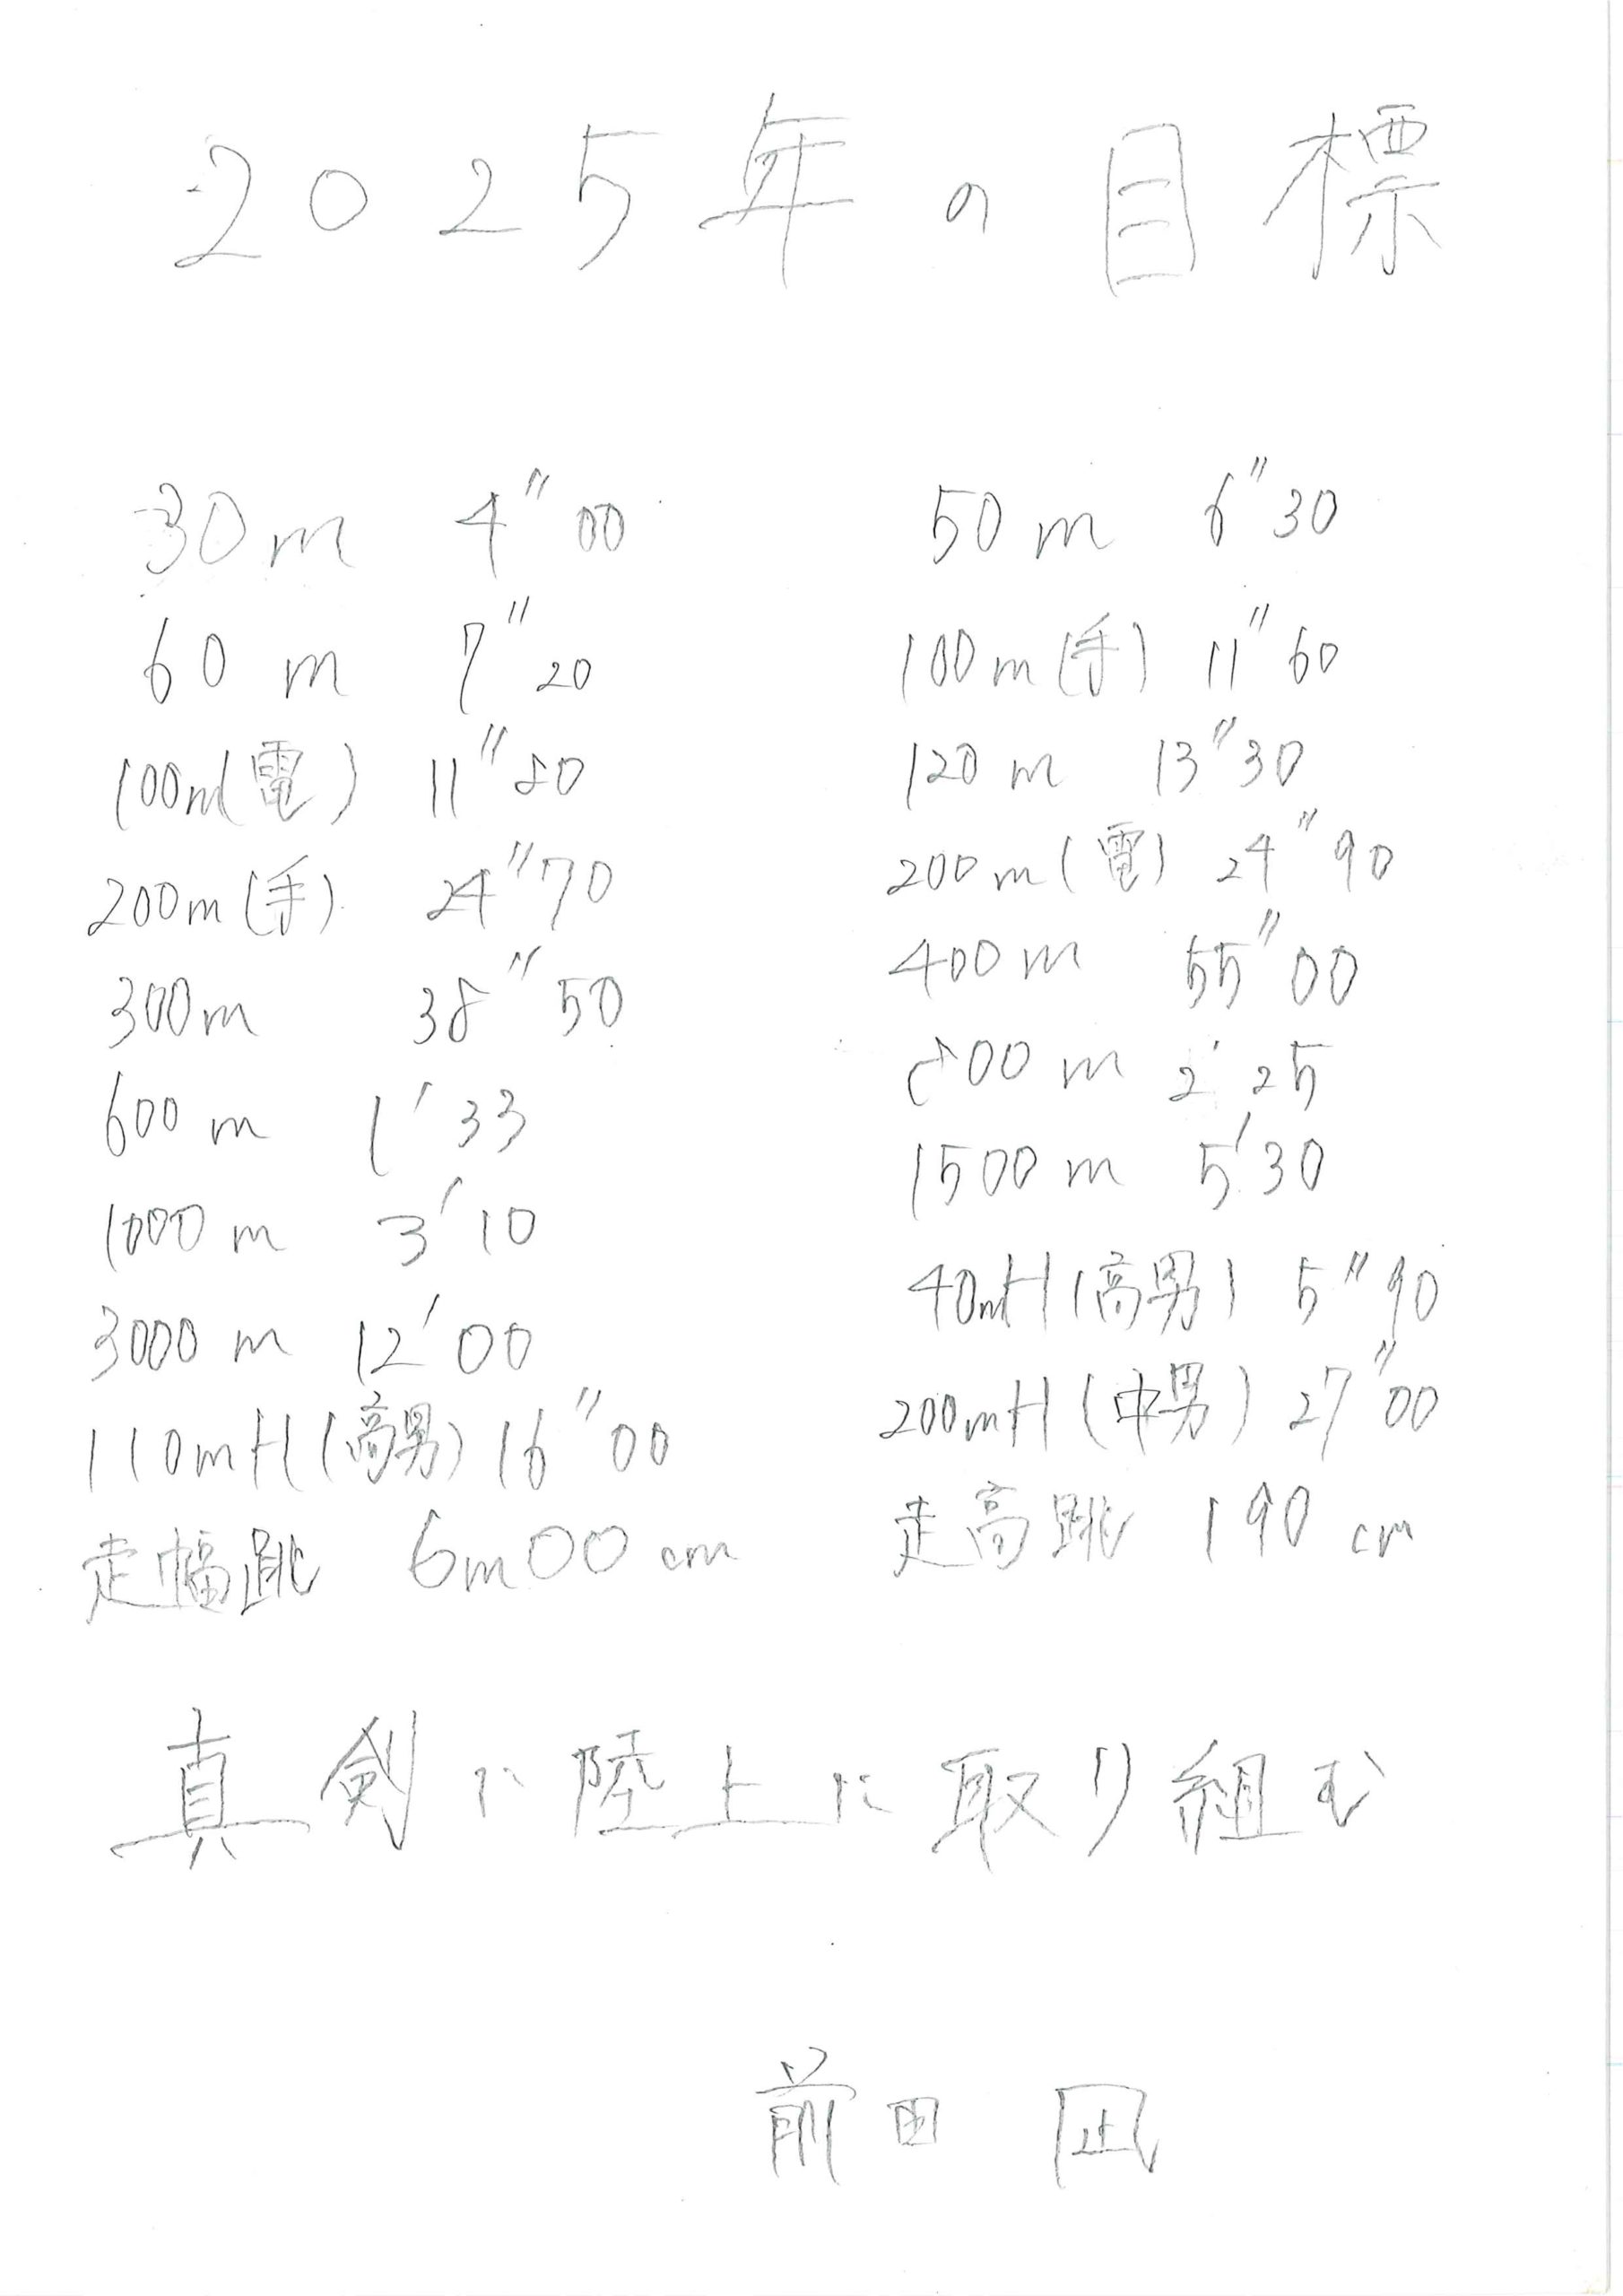 2025年の目標
30m 4"00 50m 6"30
60m 7"20 100m(手) 11"60
100m(電) 11"80 120m 13"30
200m(手) 24"70 200m(電) 24"90
300m 38"50 400m 55"00
600m 1'33 800m 2'25
1000m 3'10 1500m 5'30
3000m 12'00 40mH(高男) 5"90
110mH(高男) 16"00 200mH(中男) 27"00
走幅跳 6m00cm 走高跳 190cm
真剣に陸上に取り組む
前田 凪